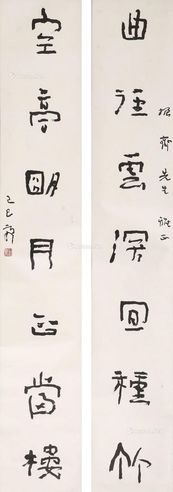 齋先生 雅正
曲徑雲深宜種竹
空亭明月正當樓